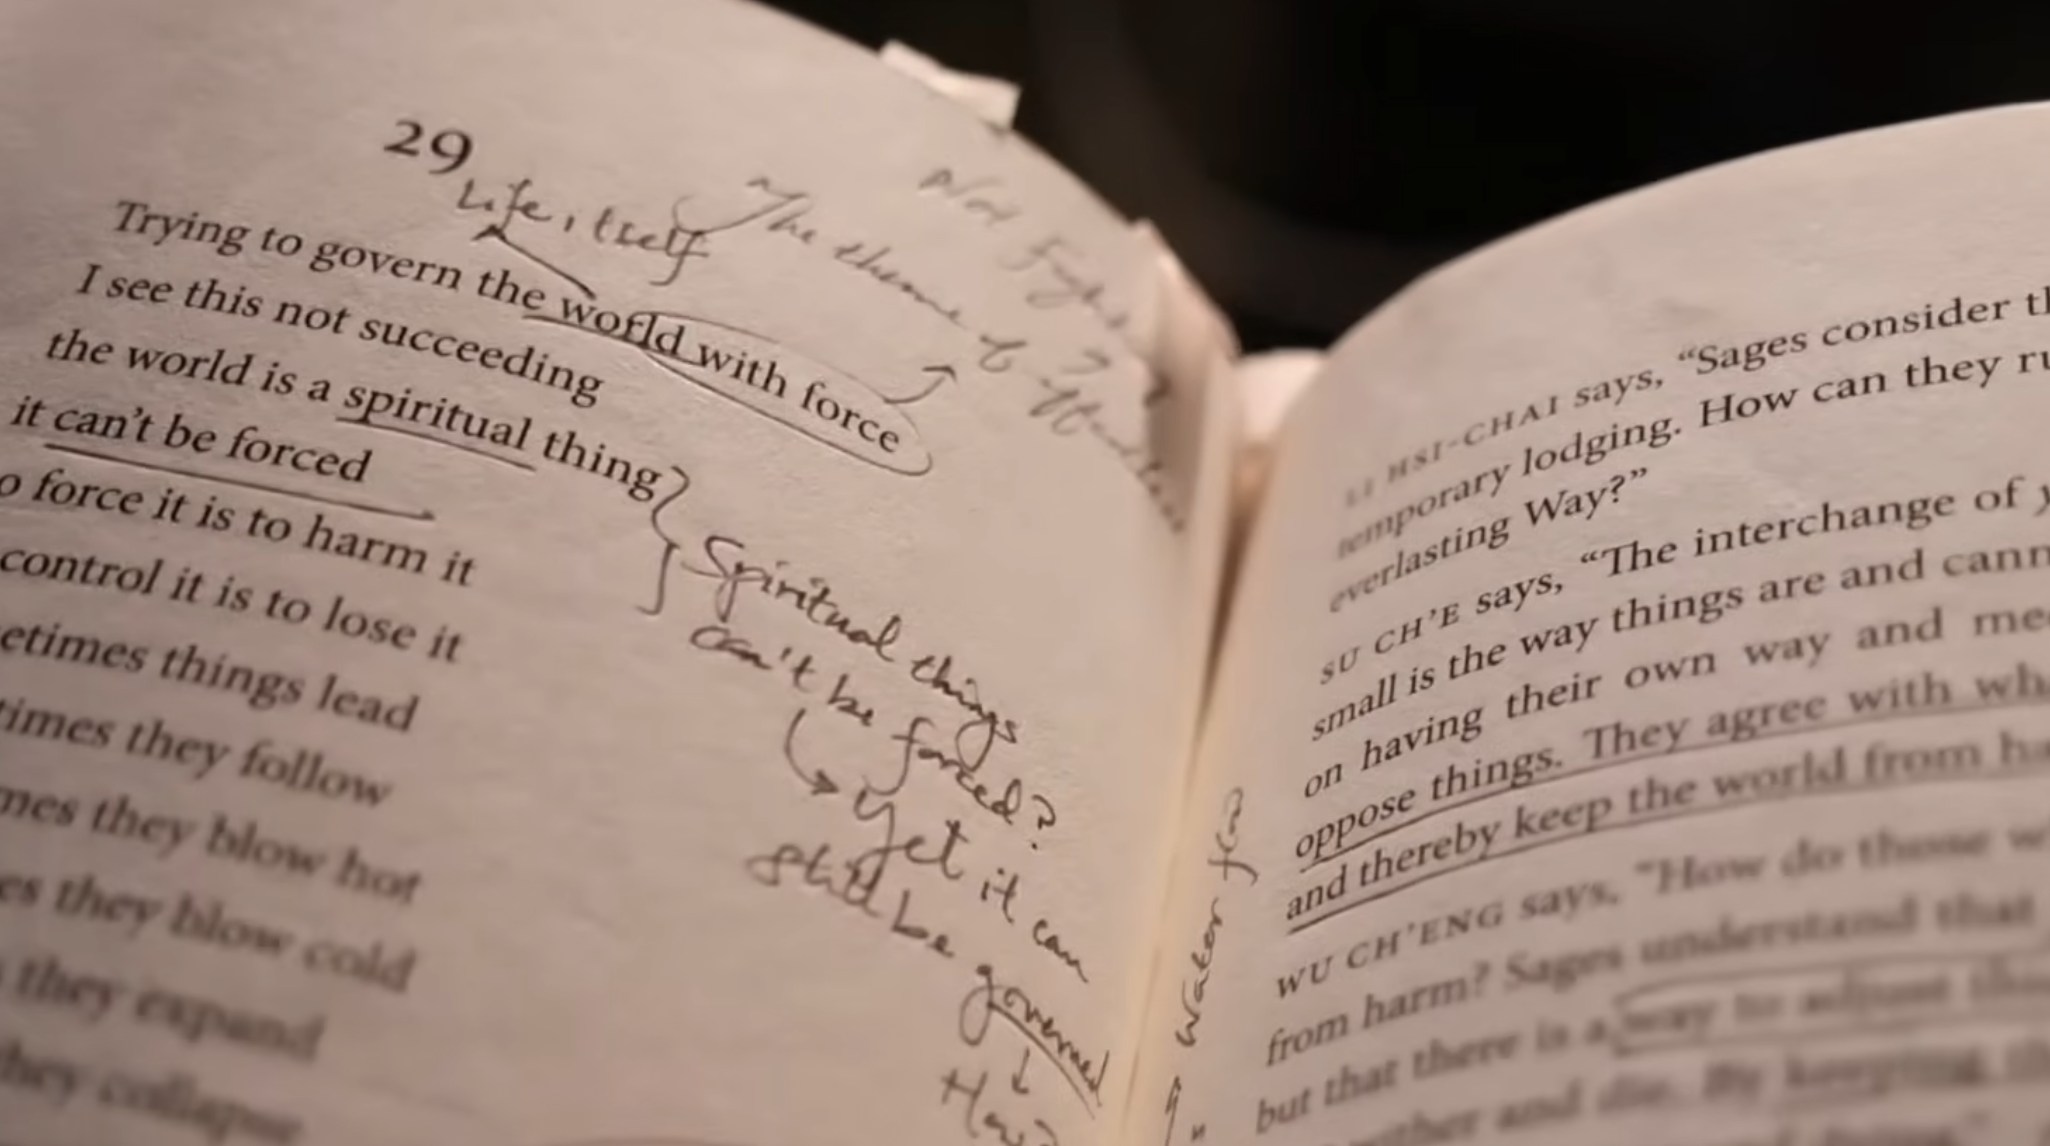 29
Life, itself
The theme of
Not Fight
Trying to govern the world with force
I see this not succeeding
the world is a spiritual thing
it can't be forced
o force it is to harm it
control it is to lose it
etimes things lead
times they follow
mes they blow hot
es they blow cold
they expand
they collapse
Spiritual things
can't be forced?
yet it can
still be governed
How?
Water
LI HSI-CHAI says, “Sages consider th
temporary lodging. How can they ru
everlasting Way?”
SU CH'E says, “The interchange of y
small is the way things are and cann
on having their own way and me
oppose things. They agree with wh
and thereby keep the world from ha
WU CH'ENG says, “How do those w
from harm? Sages understand that
but that there is a way to adjust
and die. By keeping